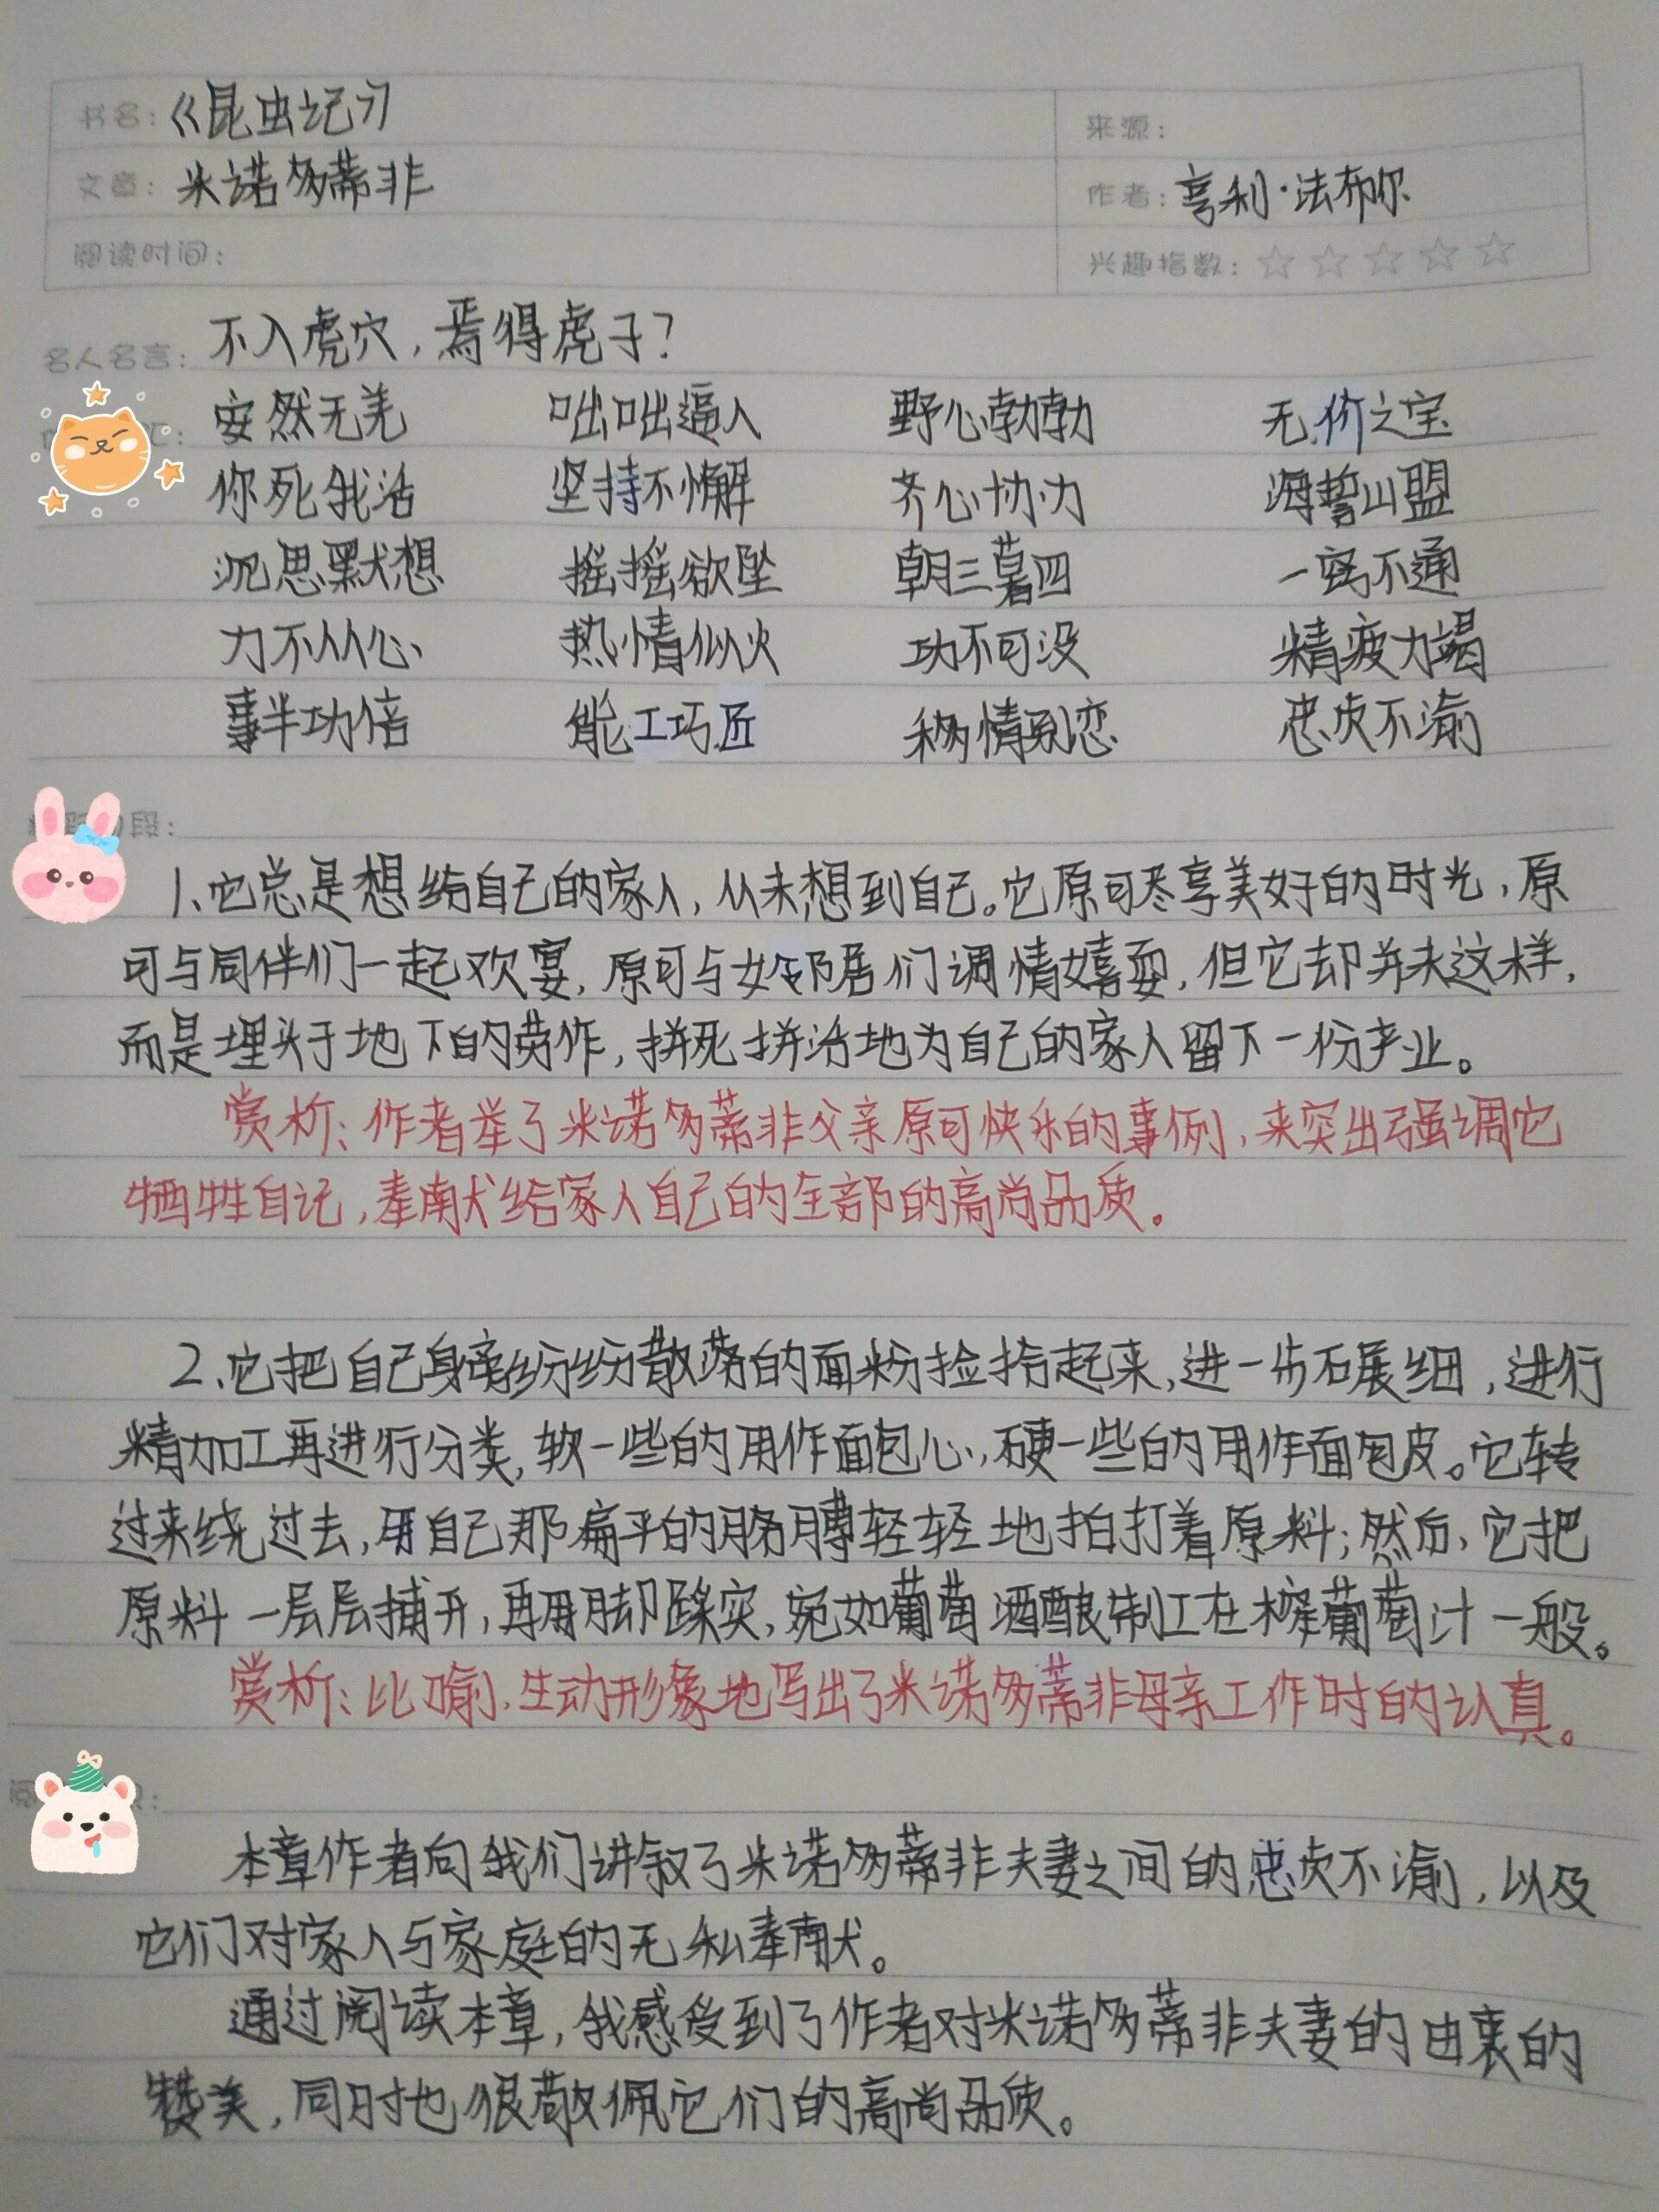 书名：《昆虫记》
来源：
文章：米诺多蒂非
作者：亨利·法布尔
阅读时间：
兴趣指数：☆☆☆☆☆
名人名言：不入虎穴，焉得虎子？
安然无羌 咄咄逼人 野心勃勃 无价之宝
你死我活 坚持不懈 齐心协力 海誓山盟
沉思默想 摇摇欲坠 朝三暮四 一窍不通
力不从心 热情似火 功不可没 精疲力竭
事半功倍 能工巧匠 移情别恋 忠贞不渝
段：
1、它总是想给自己的家人，从未想到自己。它原可尽享美好的时光，原
可与同伴们一起欢宴，原可与女邻居们调情嬉耍，但它却并未这样，
而是埋头于地下的劳作，拼死拼活地为自己的家人留下一份产业。
赏析：作者举了米诺多蒂非父亲原可快乐的事例，来突出强调它
牺牲自记，奉献给家人自己的全部的高尚品质。
2、它把自己身旁纷纷散落的面粉捡拾起来，进一步碾细，进行
精加工再进行分类，软一些的用作面包心，硬一些的用作面包皮。它转
过来绕过去，用自己那扁平的胳膊轻轻地拍打着原料；然后，它把
原料一层层捕开，再用脚踩实，宛如葡萄酒酿制工在榨葡萄汁一般。
赏析：比喻，生动形象地写出了米诺多蒂非母亲工作时的认真。
本章作者向我们讲叙了米诺多蒂非夫妻之间的忠贞不渝，以及
它们对家人与家庭的无私奉献。
通过阅读本章，我感受到了作者对米诺多蒂非夫妻的由衷的
赞美，同时也很敬佩它们的高尚品质。